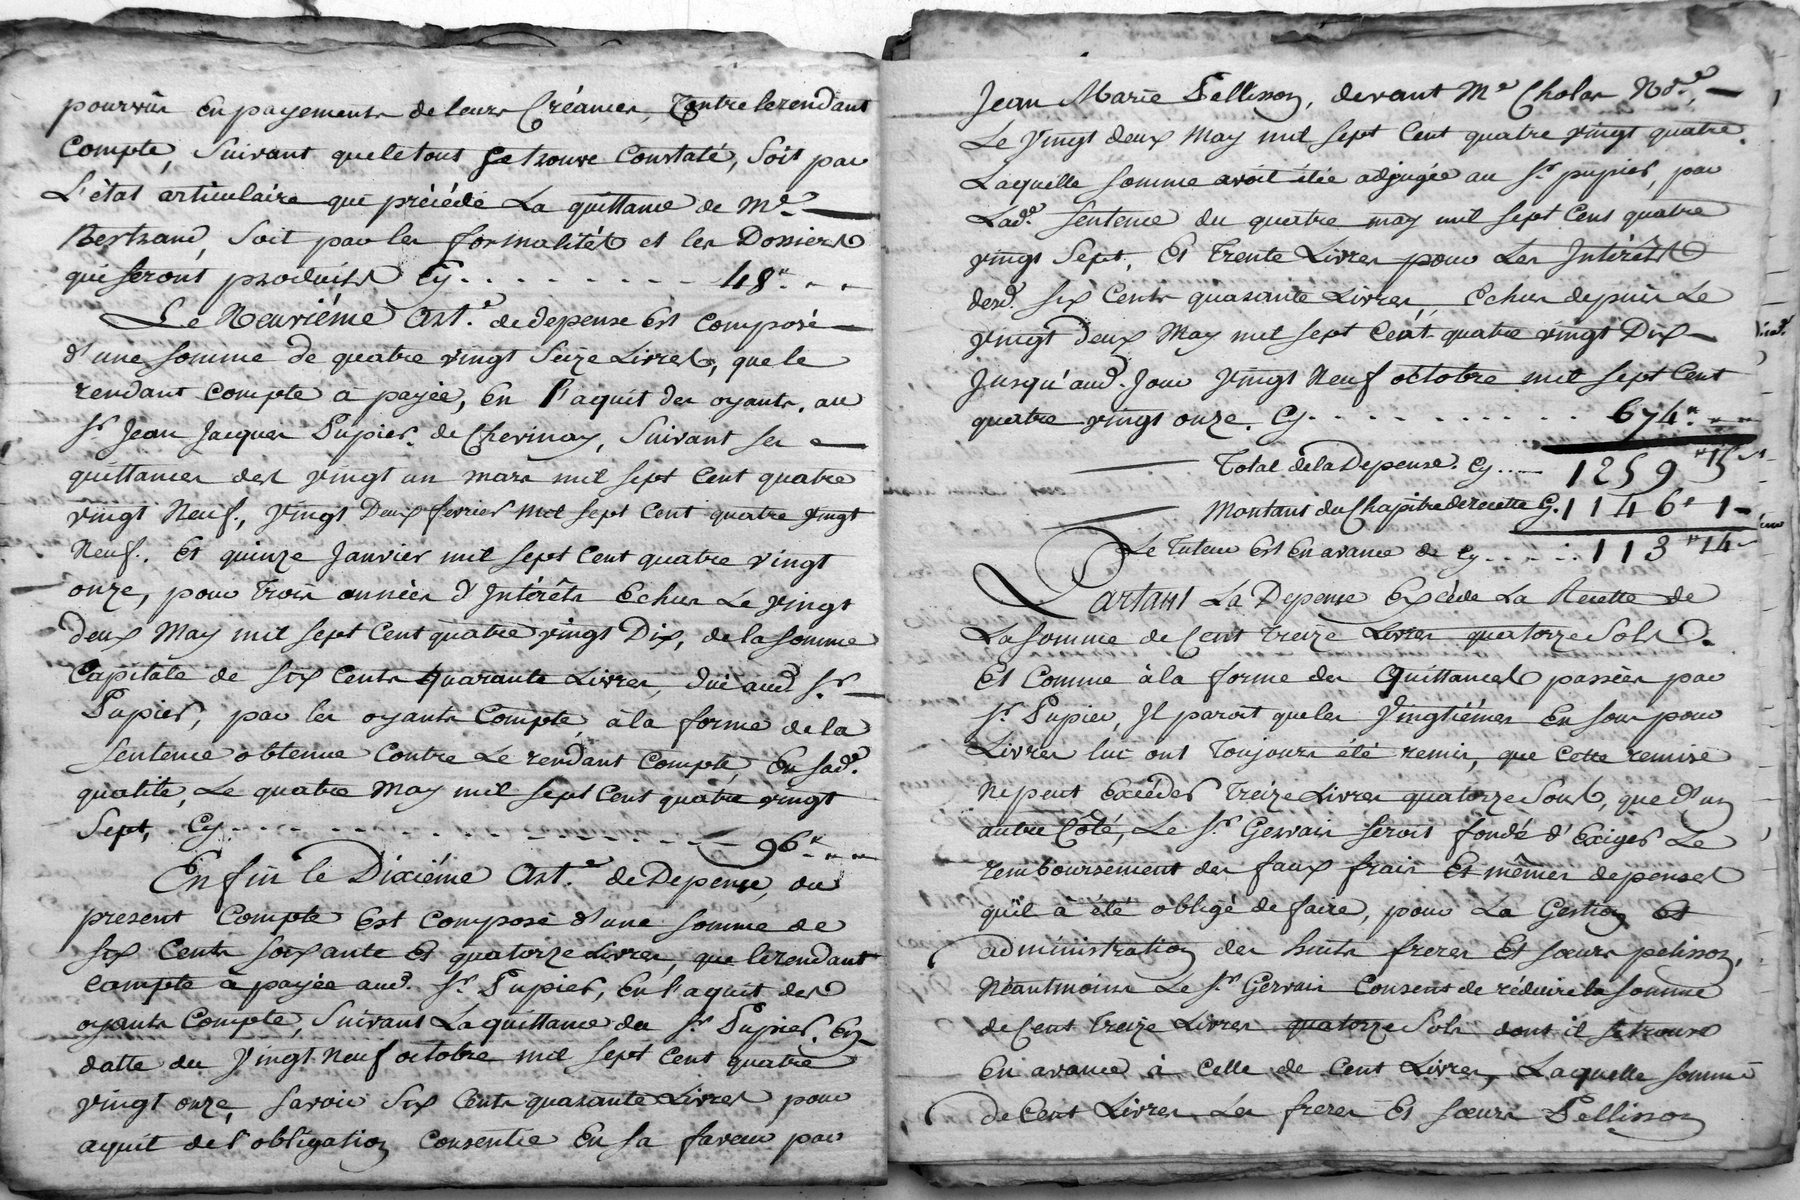 pourvûs En payements de leurs Créances, Contre le rendant
Compte, Suivant que le tout se trouve Constaté, Soit par
L'êtat articulaire qui précéde La quittance de Me
Bertrand, Soit par les formalités et les Dossiers
qui seront produits Cy . . . . . . . . 48" " "
Le Neuviéme Art.e de depense Est composé
d'une somme de quatre vingt Seize Livres, que le
rendant compte à payée, En l'aquit des oyants, au
Sr Jean Jacques Pupier de Chevinay, Suivant ses
quittances des vingt un mars mil sept Cent quatre
vingt Neuf, Vingt Deux fevrier mil sept Cent quatre vingt
Neuf. Et quinze Janvier mil sept Cent quatre vingt
onze, pour Trois années d'Intérêts Echus Le vingt
deux May mil sept Cent quatre vingt Dix, de la somme
Capitale de six Cents quarante Livres, duë aud. Sr
Pupier, par les oyants Compte, à la forme de la
sentence obtenue Contre Le rendant Compte, En sad.e
qualité, Le quatre May mil sept Cent quatre vingt
Sept, Cy . . . . . . . . . . . . . 96" " "
Enfin le Dixiéme Art.e de Depense, du
present Compte Est composé d'une somme de
six Cents soixante Et quatorze Livres, que le rendant
compte à payée aud. Sr Pupier, En l'aquit des
oyants Compte, Suivant La quittance du Sr Pupier, En
datte du Vingt Neuf octobre mil sept Cent quatre
vingt onze, savoir Six Cents quarante Livres pour
aquit de l'obligation consentie En sa faveur par
Jean Marie Pellisson, devant Me Cholas Nore,
Le Vingt deux May mil sept Cent quatre vingt quatre.
Laquelle somme avoit étée adjugée au Sr pupier, par
Lad.e sentence du quatre may mil sept Cent quatre
vingt Sept, Et trente Livres pour Les Intérêts
desd. six Cents quarante Livres, Echus depuis Le
vingt deux May mil sept Cent quatre vingt Dix
Jusqu'aud. Jour Vingt Neuf octobre mil sept Cent
quatre vingt onze. Cy . . . . . . . . . 674" " "
Total de la Depense. Cy . . . . 1259 " 15
Montant du Chapitre de recette Cy. 1146 " 1
Le Tuteur est En avance de Cy . . . . 113 " 14
Partant La Depense Excéde La Recette de
La somme de Cent treize Livres quatorze Sols.
Et Comme à la forme des Quittances passées par
Sr Pupier, Il paroit que les Vingtiémes En sous pour
Livres lui ont Toujours été remis, que Cette remise
Ne peut Excéder Treize Livres quatorze Sous, que d'un
autre Côté, Le Sr Gervais seroit fondé d'Exiger Le
remboursement des faux frais Et mêmes depenses
qu'il à été obligé de faire, pour La Gestion Et
administration des huits freres Et sœurs pelisson,
Néantmoins Le Sr Gervais Consent de réduire la somme
de Cent treize Livres quatorze Sols dont il se trouve
En avance à Celle de Cent Livres, Laquelle somme
de Cent Livres Les freres Et sœurs Pellisson